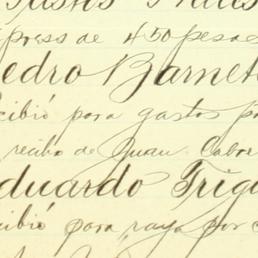 Justos
press de 450 pesos
edro Barnet
cibió para gastos p
recibo de Juan Cabre
duardo Trigu
cibió para raya por